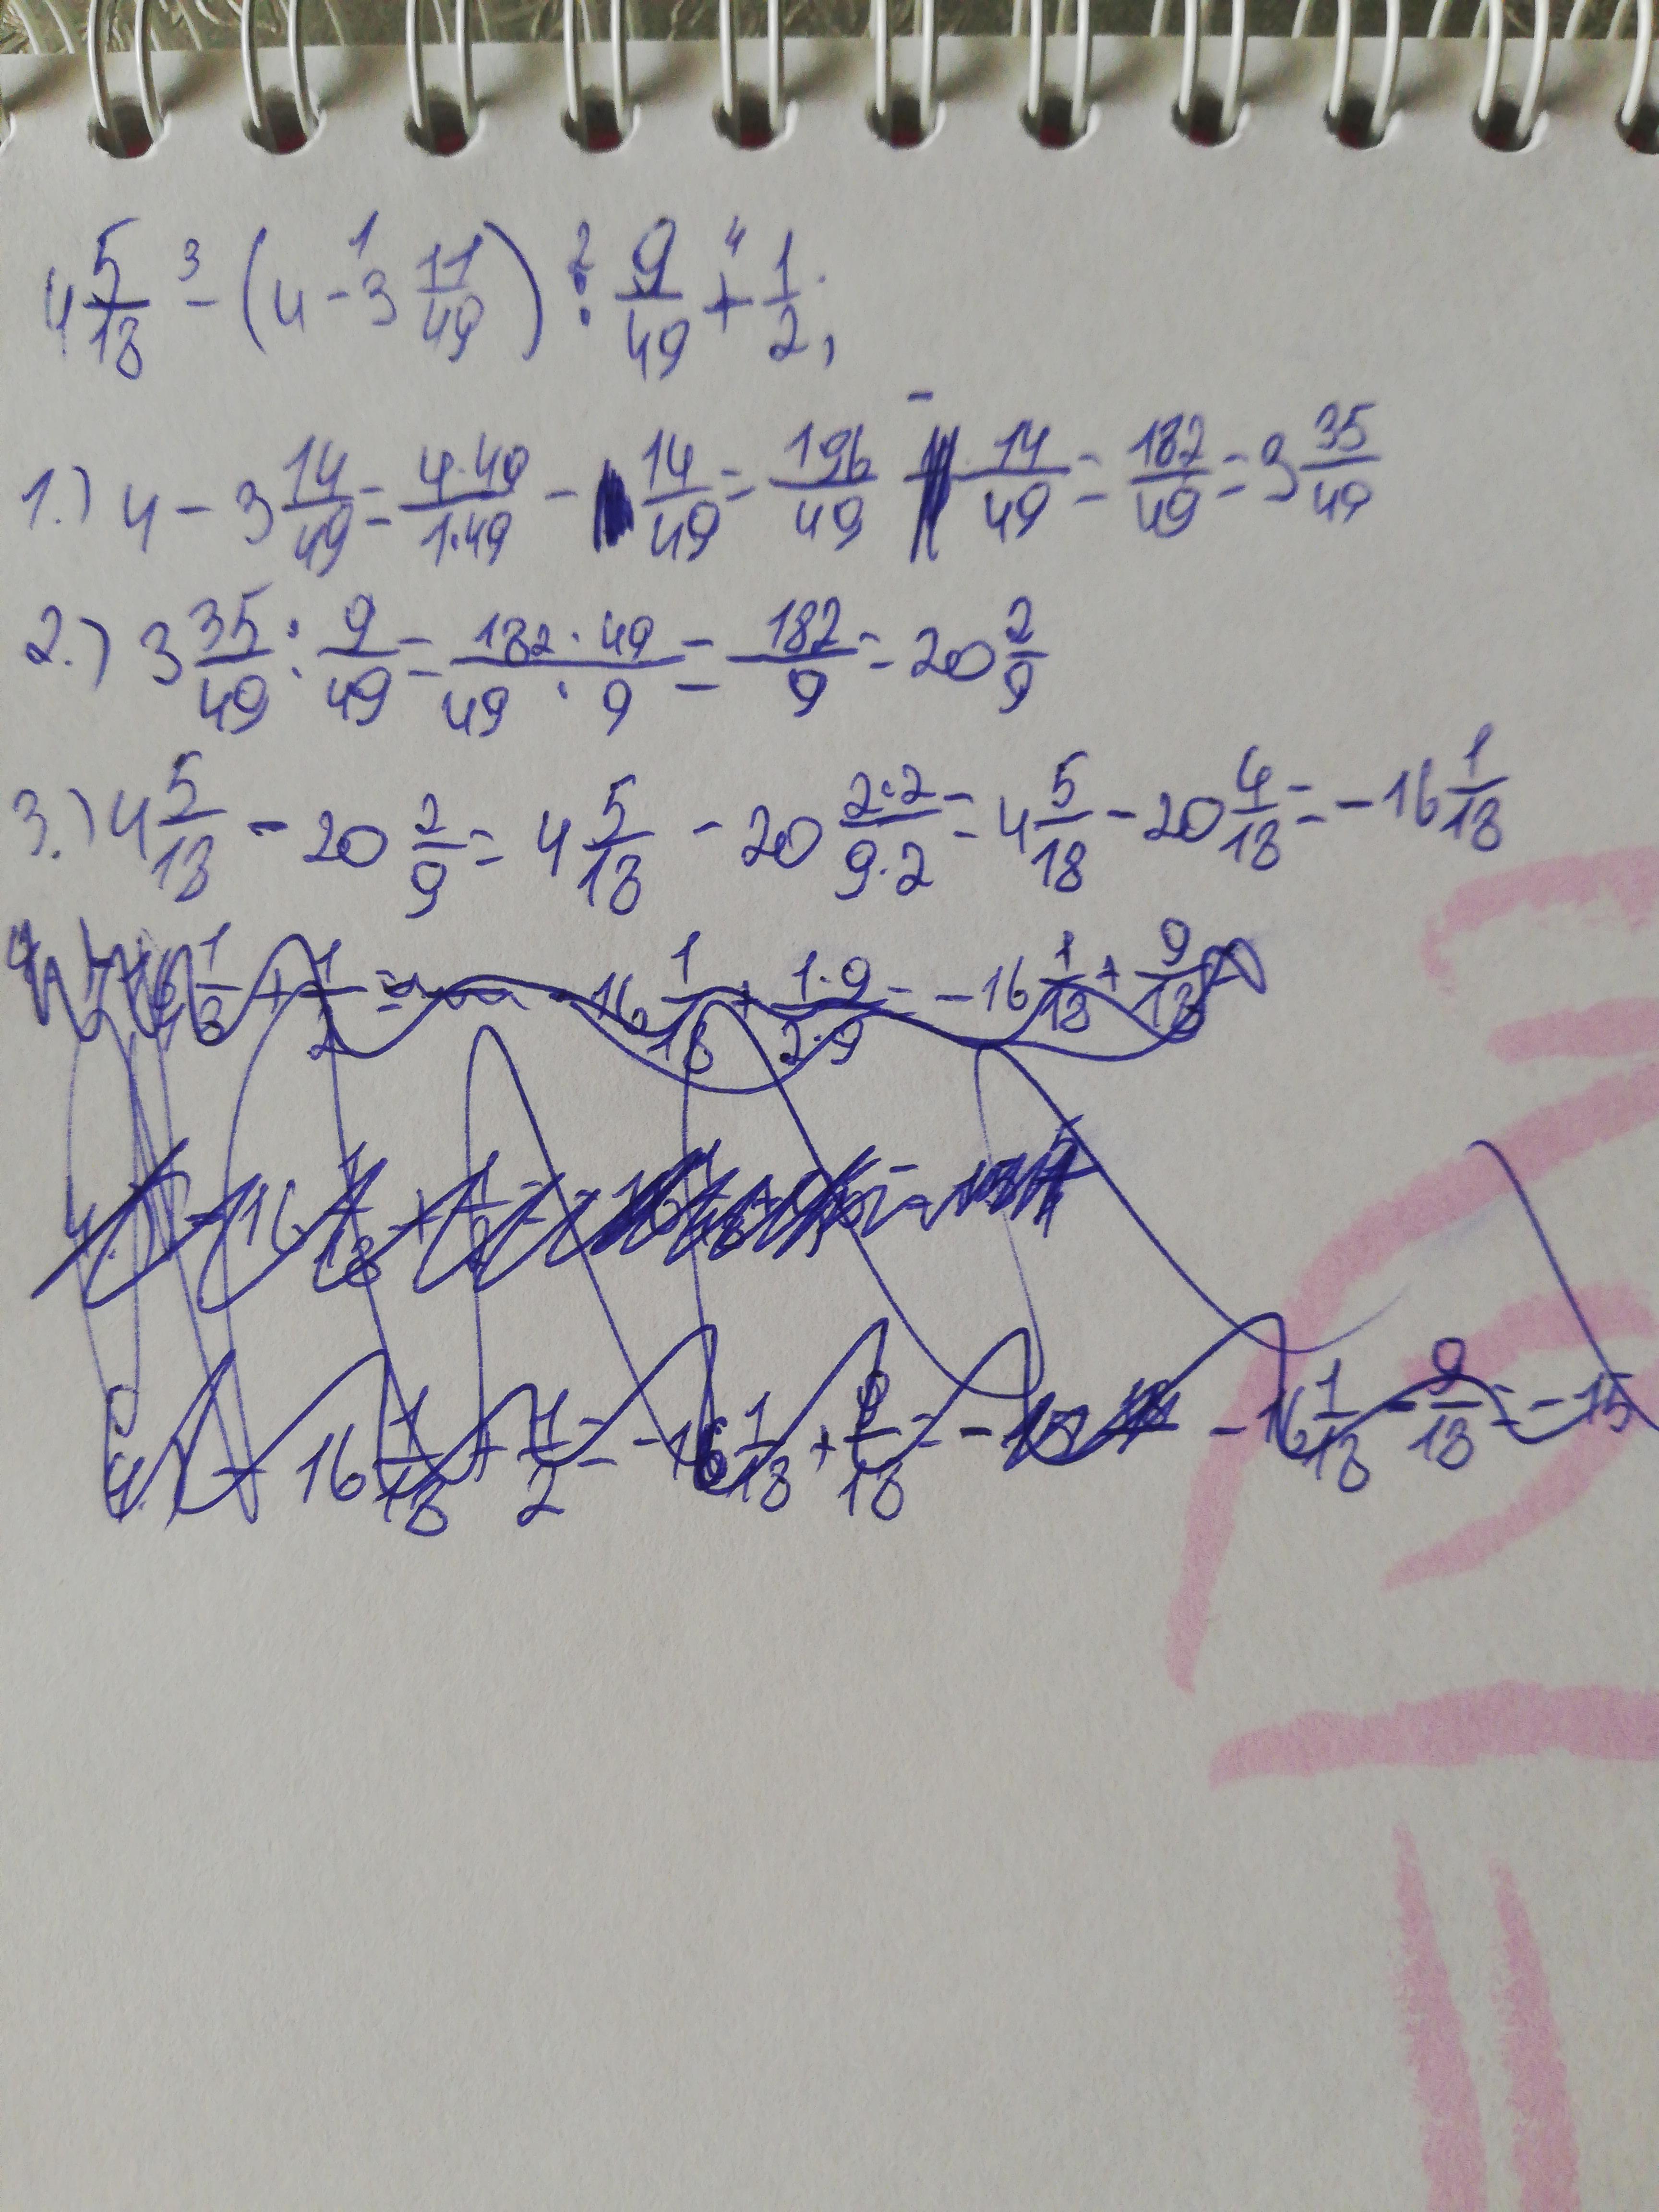 4 5/18 3 - (4 1 - 3 11/49) 2 : 9/49 4 + 1/2;
1.) 4 - 3 14/49 = 4·49/1·49 - 14/49 = 196/49 - 14/49 = 182/49 = 3 35/49
2.) 3 35/49 : 9/49 = 182·49/49·9 = 182/9 = 20 2/9
3.) 4 5/18 - 20 2/9 = 4 5/18 - 20 2·2/9·2 = 4 5/18 - 20 4/18 = -16 1/18
+ 1/2 = -16 1/18 + 1·9/2·9 = -16 1/18 + 9/18
-16 1/18 +
4.) -16 1/18 + 1/2 = -16 1/18 + 9/18 = - -16 1/18 - 9/18 = -15